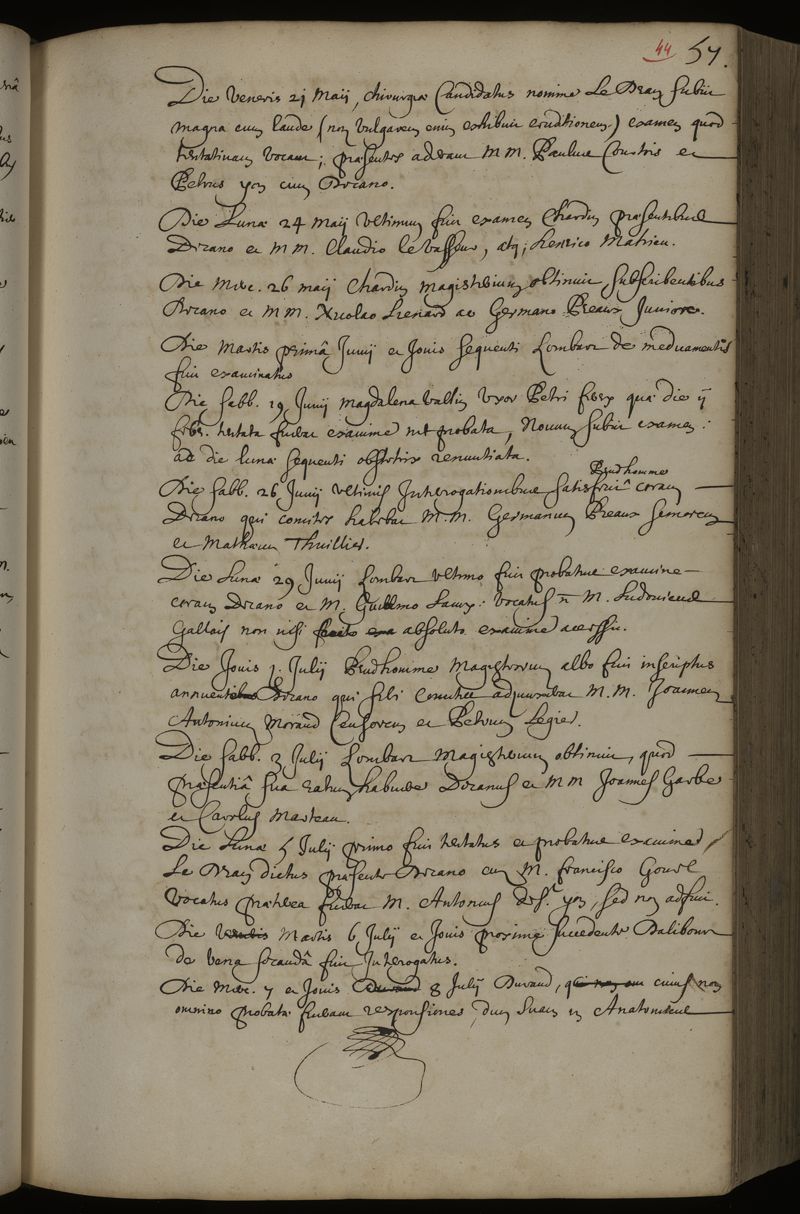 44 57.
Die Veneris 21 Maij, chirurgiæ Candidatus nomine Le Dran subiit
magna cum laude (non vulgarem enim exhibuit eruditionem) examen quod
tentativam vocant; præsentes aderant M M. Paulus Coustris et
Petrus yon cum Decano.
Die Lunæ 24 Maij Ultimum fuit examen Chardin præsentibus
Decano et M M. Claudio le Vasseur, atq; Henrico Mathieu.
Die Merc. 26 maij Chardin magisterium obtinuit subscribentibus
Decano et M M. Nicolao Lienard ac Germano Preaux Juniore.
Die Martis primâ Junij et Jovis sequenti Lombart de medicamentis
fuit examinatus
Die Sabb. 19 Junij Magdalena Vallin Uxor Petri quæ die ij
tentata fuerat examine nec probata, Novum subiit examen:
ac die lunæ sequenti obstetrix renuntiata.
Prudhomme
Die Sabb. 26 Junij Ultimis Interogationibus satisfecit coram
Decano qui comites habebat M.M. Germanum Preaux Seniorem
et Mathæum Thuillier.
Die Lunæ 29 Junij Lombart Ultimo fuit probatus examine
coram Decano et M. Guillmo Vocatus n. M. Ludovicus
Gallois non nisi absoluto examine acessit.
Die Jovis 1. Julij Prudhomme Magistrorum albo fuit inscriptus
annuente Decano qui sibi Comites adjunxerat M.M. Joannem
Antonium Morand Censorem et Petrum Legier.
Die Sabb. 3 Julij Lombart Magisterium obtinuit, quod
præsentiâ sua ratum habuere Decanus et M M Joannes Garbe
et Carolus Marteau.
Die Lunæ 5 Julij primo fuit tentatus et probatus examine
Le Dran dictus præsente Decano cum M. Francisco Gouel
Vocatus præterea fuerat M. Antonius yon, sed non adfuit.
Die Martis 6 Julij et Jovis proxime succedente Dalibour
de vena secandâ fuit Interogatus.
Die Merc. 7 et Jovis 8 Julij Durand, cuius non
omnino probatæ fuerant responsiones, dum Anatomicus